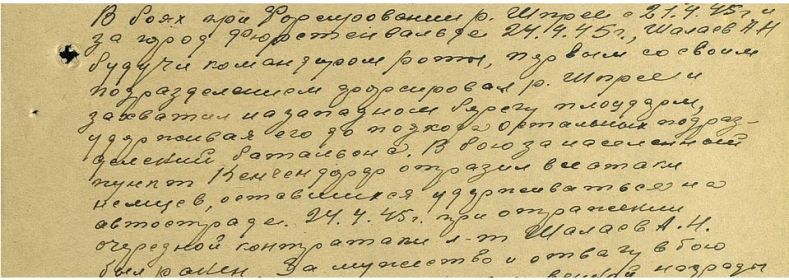 В боях при форсировании р. Шпрее 21.4.45г и
за город Фюрстенвальде 24.4.45г., Шалаев А Н
будучи командиром роты, первым со своим
подразделением форсировал р. Шпрее и
захватил на западном берегу плоцдарм,
удерживая его до подхода остальных подраз-
делений батальона. В бою за населенный
пункт Кенчендорф отразил все атаки
немцев, оставшихся удерживаться на
автостраде. 24.4.45г. при отражении
очередной контратаки л-т Шалаев А.Н.
был ранен. За мужество и отвагу в бою
награды